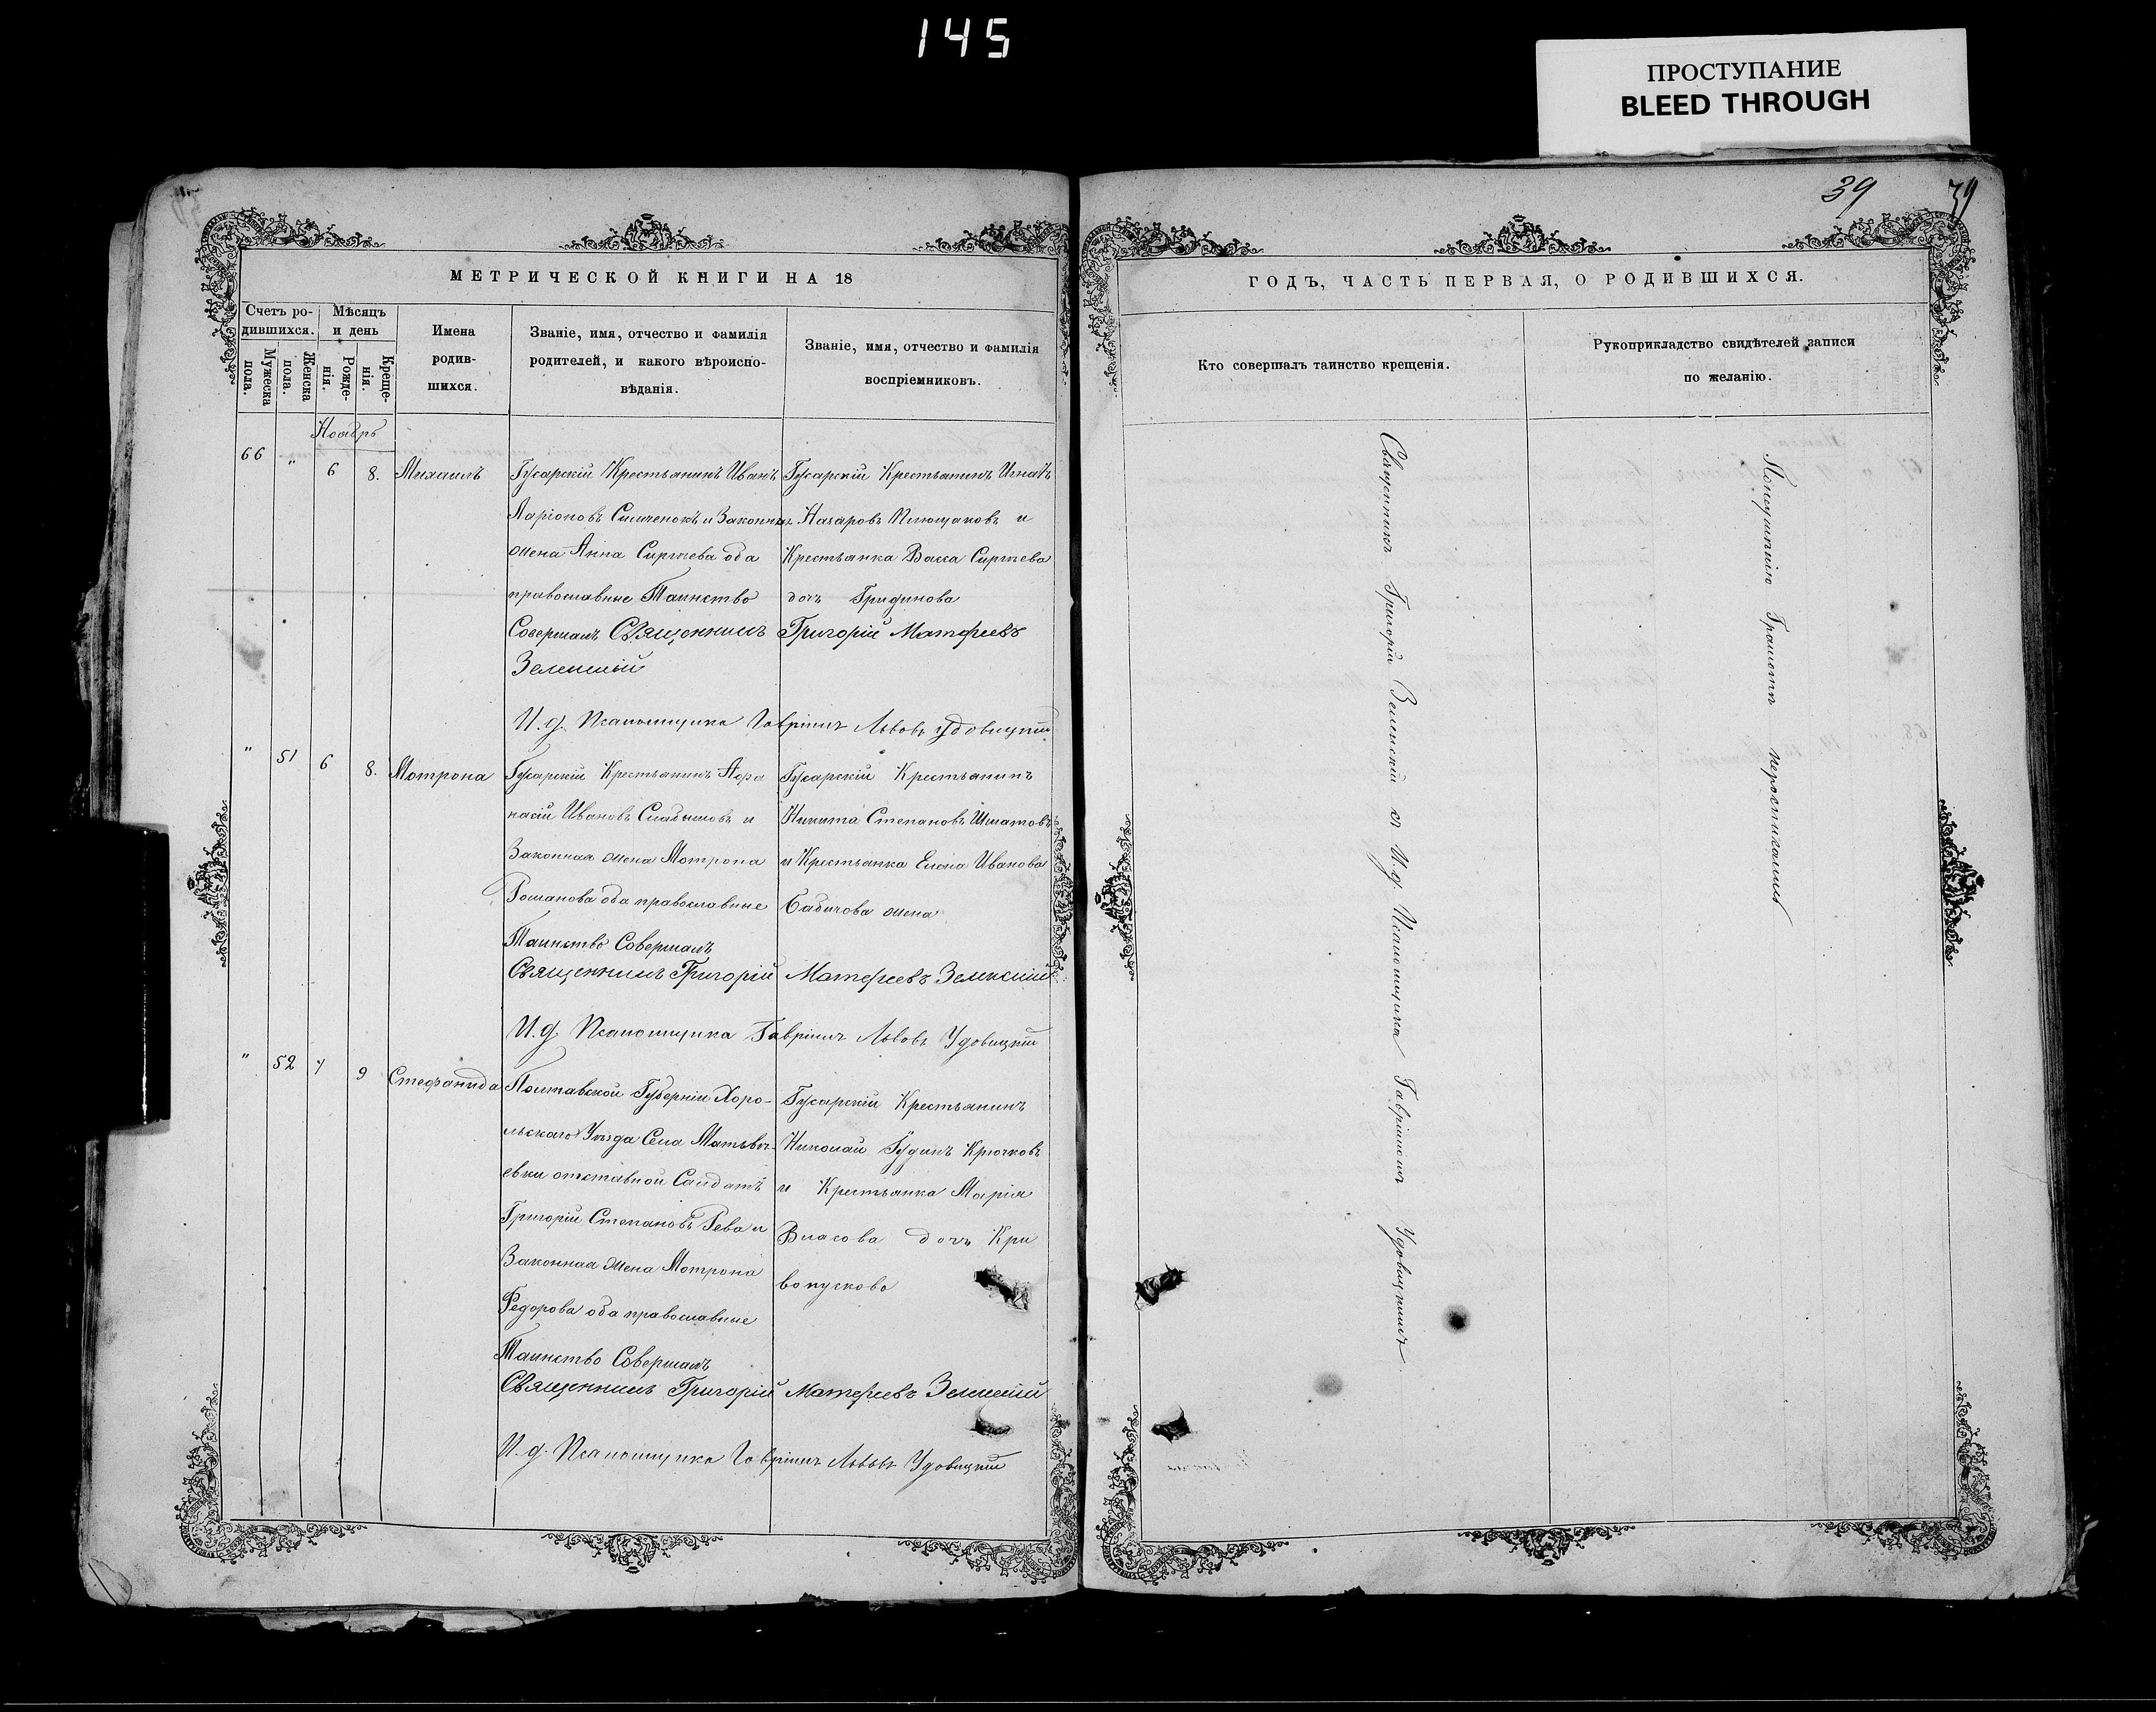 145
ПРОСТУПАНИЕ
BLEED THROUGH
39
39
МЕТРИЧЕСКОЙ КНИГИ НА 18
Счетъ ро-
дившихся.
Мѣсяцъ
и день
Мужеска
пола.
Женска
пола.
Рожде-
нія.
Креще-
нія.
Имена
родив-
шихся.
Званіе, имя, отчество и фамилія
родителей, и какого вѣроиспо-
вѣданія.
Званіе, имя, отчество и фамилія
воспріемниковъ.
Ноябрь
66 " 6 8. Михаилъ
Гусарскій Крестьянинъ Иванъ
Ларіоновъ и Законная
жена Анна Сиргѣева оба
православные Таинство
Совершалъ Священникъ Григорій Матфеевъ
Зеленскій
Гусарскій Крестьянинъ Игнатъ
Назаровъ и
Крестьянка Васса Сиргѣева
дочь Гридинова
И. д. Псаломщика Гавріилъ Львовъ Удовицкій
" 51 6 8. Мотрона
Гусарскій Крестьянинъ Афа
насій Ивановъ и
Законная жена Мотрона
Романова оба православные
Таинство Совершалъ
Священникъ Григорій Матфеевъ Зеленскій
Гусарскій Крестьянинъ
Никита Степановъ
и Крестьянка Елена Иванова
Бабичова жена
И. д. Псаломщика Гавріилъ Львовъ Удовицкій
" 52 7 9 Стефанида
Полтавской Губерніи Хоро-
льскаго Уѣзда Села
отставной Салдатъ
Григорій Степановъ Рева и
Законная жена Мотрона
Федорова оба православные
Таинство Совершалъ
Священникъ Григорій Матфеевъ Зеленскій
Гусарскій Крестьянинъ
Николай Крючковъ
и Крестьянка Марія
Власова дочь Кри
вопускова
И. д. Псаломщика Гавріилъ Львовъ Удовицкій
ГОДЪ, ЧАСТЬ ПЕРВАЯ, О РОДИВШИХСЯ.
Кто совершалъ таинство крещенія.
Рукоприкладство свидѣтелей записи
по желанію.
Священникъ Григорій Зеленскій съ И. д. Псаломщика Гавріиломъ Удовицкимъ